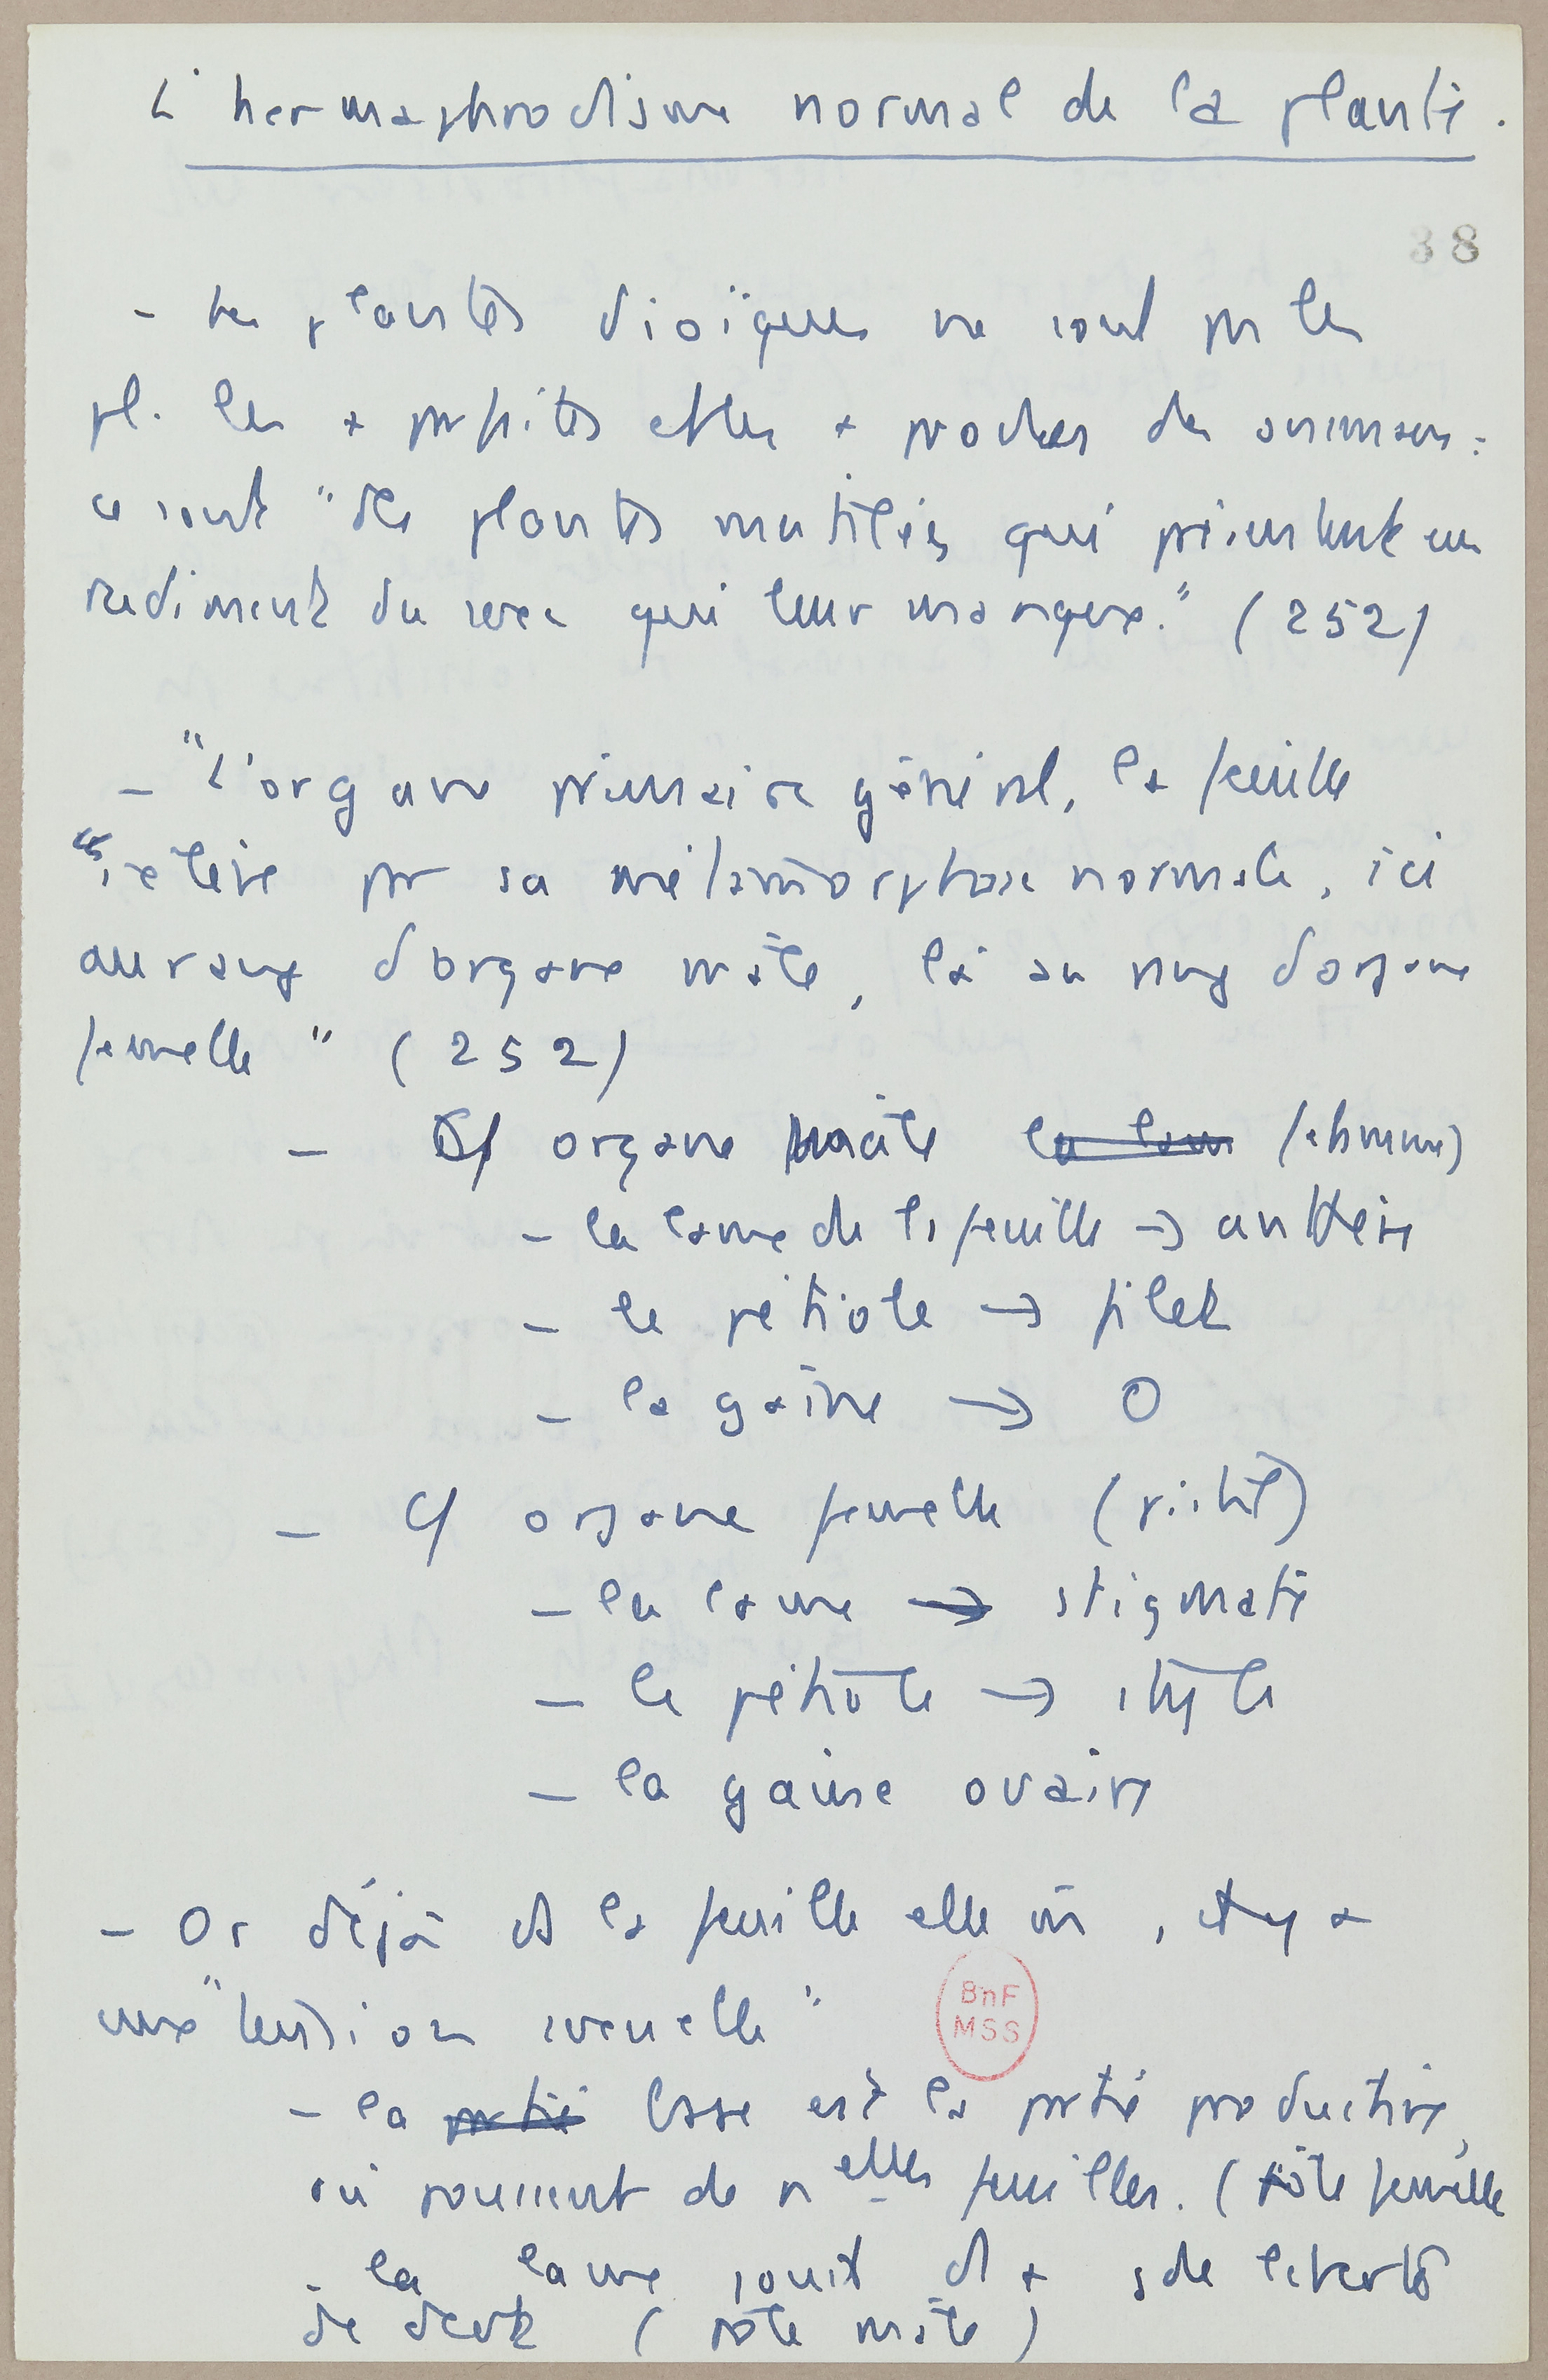 L'hermaphrodisme normal de la plante.
38
- Les plantes dioïques ne sont pas les
pl. les + parfaites et les + proches des animaux :
ce sont "des plantes mutilées qui présentent un
rudiment du sexe qui leur manque." (252)
- "L'organe primaire général, la feuille
s'élève par sa métamorphose normale, ici
au rang d'organe mâle, là au rang d'organe
femelle" (252)
- organe mâle (étamine)
- la lame de la feuille → anthère
- le pétiole → filet
- la gaine → 0
- cf organe femelle (pistil)
- la lame → stigmate
- le pétiole → style
- la gaine ovaire
- Or déjà ds la feuille elle m̄, il y a
une "tension sexuelle"
- la partie base est la partie productive,
où poussent de nelles feuilles. (pôle femelle
- la lame jouit d + de liberté
de dvt (pôle mâle)
BnF
MSS